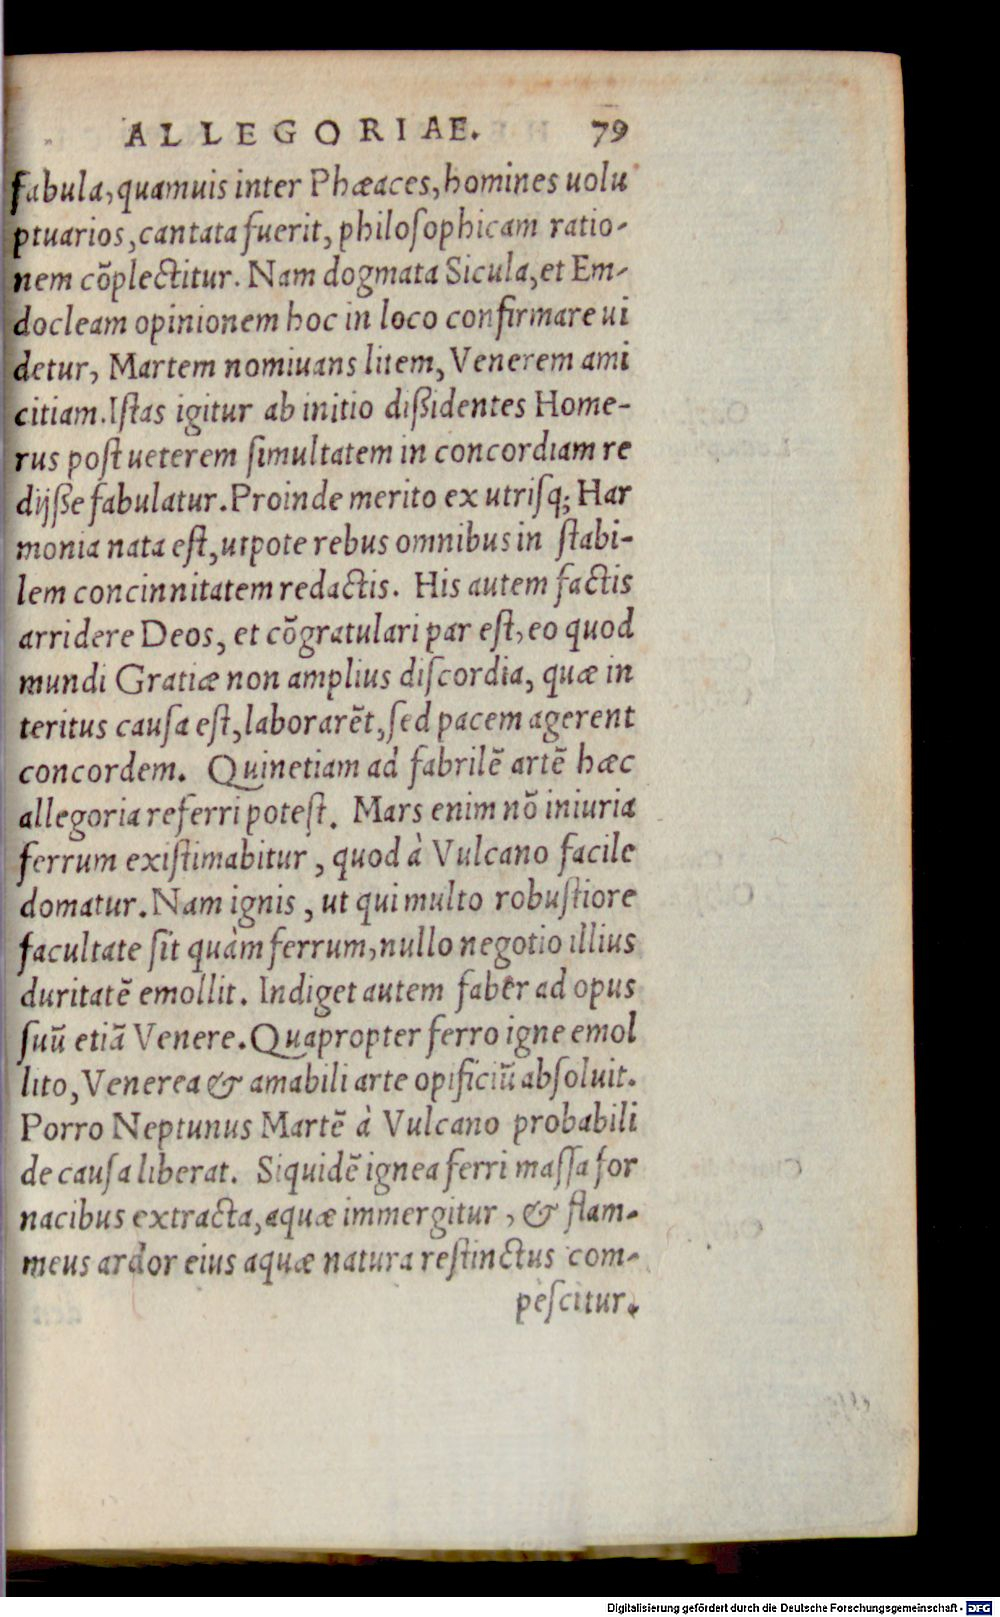 ALLEGORIAE. 79
fabula, quamuis inter Phæaces, homines uolu
ptuarios, cantata fuerit, philoſophicam ratio-
nem cõplectitur. Nam dogmata Sicula, et Em-
docleam opinionem hoc in loco confirmare ui
detur, Martem nomiuans litem, Venerem ami
citiam. Iſtas igitur ab initio dißidentes Home-
rus poſt ueterem ſimultatem in concordiam re
dijße fabulatur. Proinde merito ex utriſq; Har
monia nata eſt, utpote rebus omnibus in ſtabi-
lem concinnitatem redactis. His autem factis
arridere Deos, et cõgratulari par eſt, eo quod
mundi Gratiæ non amplius diſcordia, quæ in
teritus cauſa eſt, laborarẽt, ſed pacem agerent
concordem. Quinetiam ad fabrilẽ artẽ hæc
allegoria referri poteſt. Mars enim nõ iniuria
ferrum exiſtimabitur, quod à Vulcano facile
domatur. Nam ignis, ut qui multo robuſtiore
facultate ſit quàm ferrum, nullo negotio illius
duritatẽ emollit. Indiget autem faber ad opus
ſuũ etiã Venere. Quapropter ferro igne emol
lito, Venerea & amabili arte opificiũ abſoluit.
Porro Neptunus Martẽ à Vulcano probabili
de cauſa liberat. Siquidẽ ignea ferri maſſa for
nacibus extracta, aquæ immergitur, & flam-
meus ardor eius aquæ natura reſtinctus com-
peſcitur.
Digitalisierung gefördert durch die Deutsche Forschungsgemeinschaft - DFG